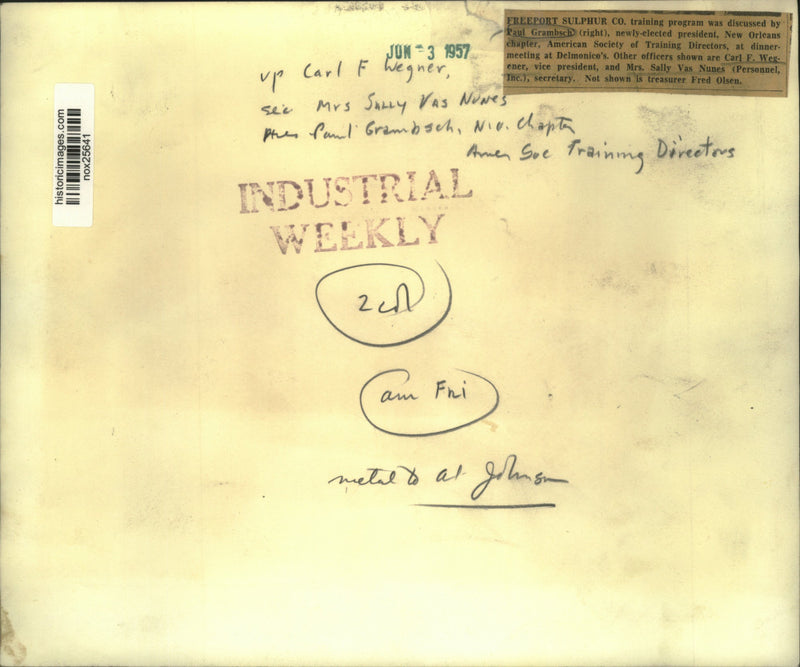 FREEPORT SULPHUR CO. training program was discussed by
Paul Grambsch (right), newly-elected president, New Orleans
chapter, American Society of Training Directors, at dinner-
meeting at Delmonico's. Other officers shown are Carl F. Weg-
ener, vice president, and Mrs. Sally Vas Nunes (Personnel,
Inc.), secretary. Not shown is treasurer Fred Olsen.
JUN -3 1957
vp Carl F Wegner,
sec Mrs Sally Vas Nunes
Pres Paul Grambsch, N.O. Chaptr
Amer Soc Training Directors
historicimages.com
nox25641
INDUSTRIAL
WEEKLY
2 col
am Fri
metal to al Johnson